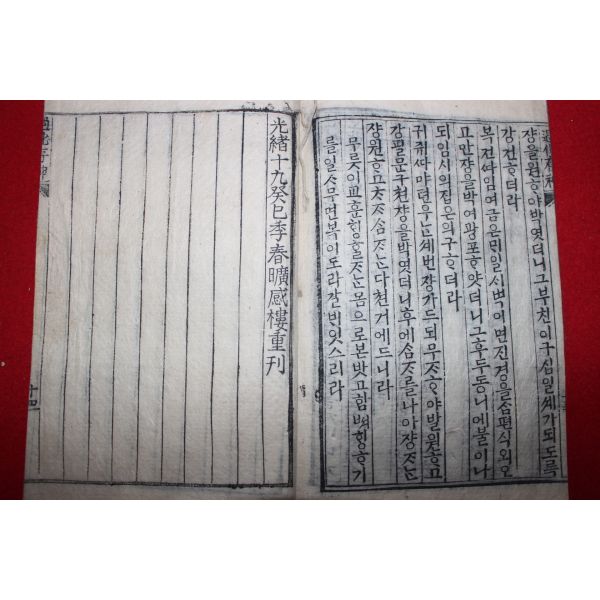 쟝을원ᄒᆞ야박엿더니그부친이구십일셰가되도록
강건ᄒᆞ더라
복건싸임여금은ᄆᆡ일시벽이면진경을삼편식외오
고만쟝을박여광포ᄒᆞ얏더니그후두동니에불이나
되임시의집은의구ᄒᆞ더라
귀쥐싸마련우ᄂᆞᆫ셰번쟝가드되무ᄌᆞᄒᆞ야발원ᄒᆞ고
강필문구쳔쟝을박엿더니후에삼ᄌᆞ를나아쟝ᄌᆞᄂᆞᆫ
쟝원ᄒᆞ고ᄎᆞᄌᆞ삼ᄌᆞᄂᆞᆫ다쳔거에드니라
무릇이교훈ᄒᆡᆼᄒᆞᆯᄌᆞᄂᆞᆫ몸으로본밧고힘ᄡᅥᄒᆡᆼᄒᆞ기
를일ᄉᆞᆷ으면복이도라갈ᄇᆡ잇스리라
光緖十九癸巳季春曠感樓重刊